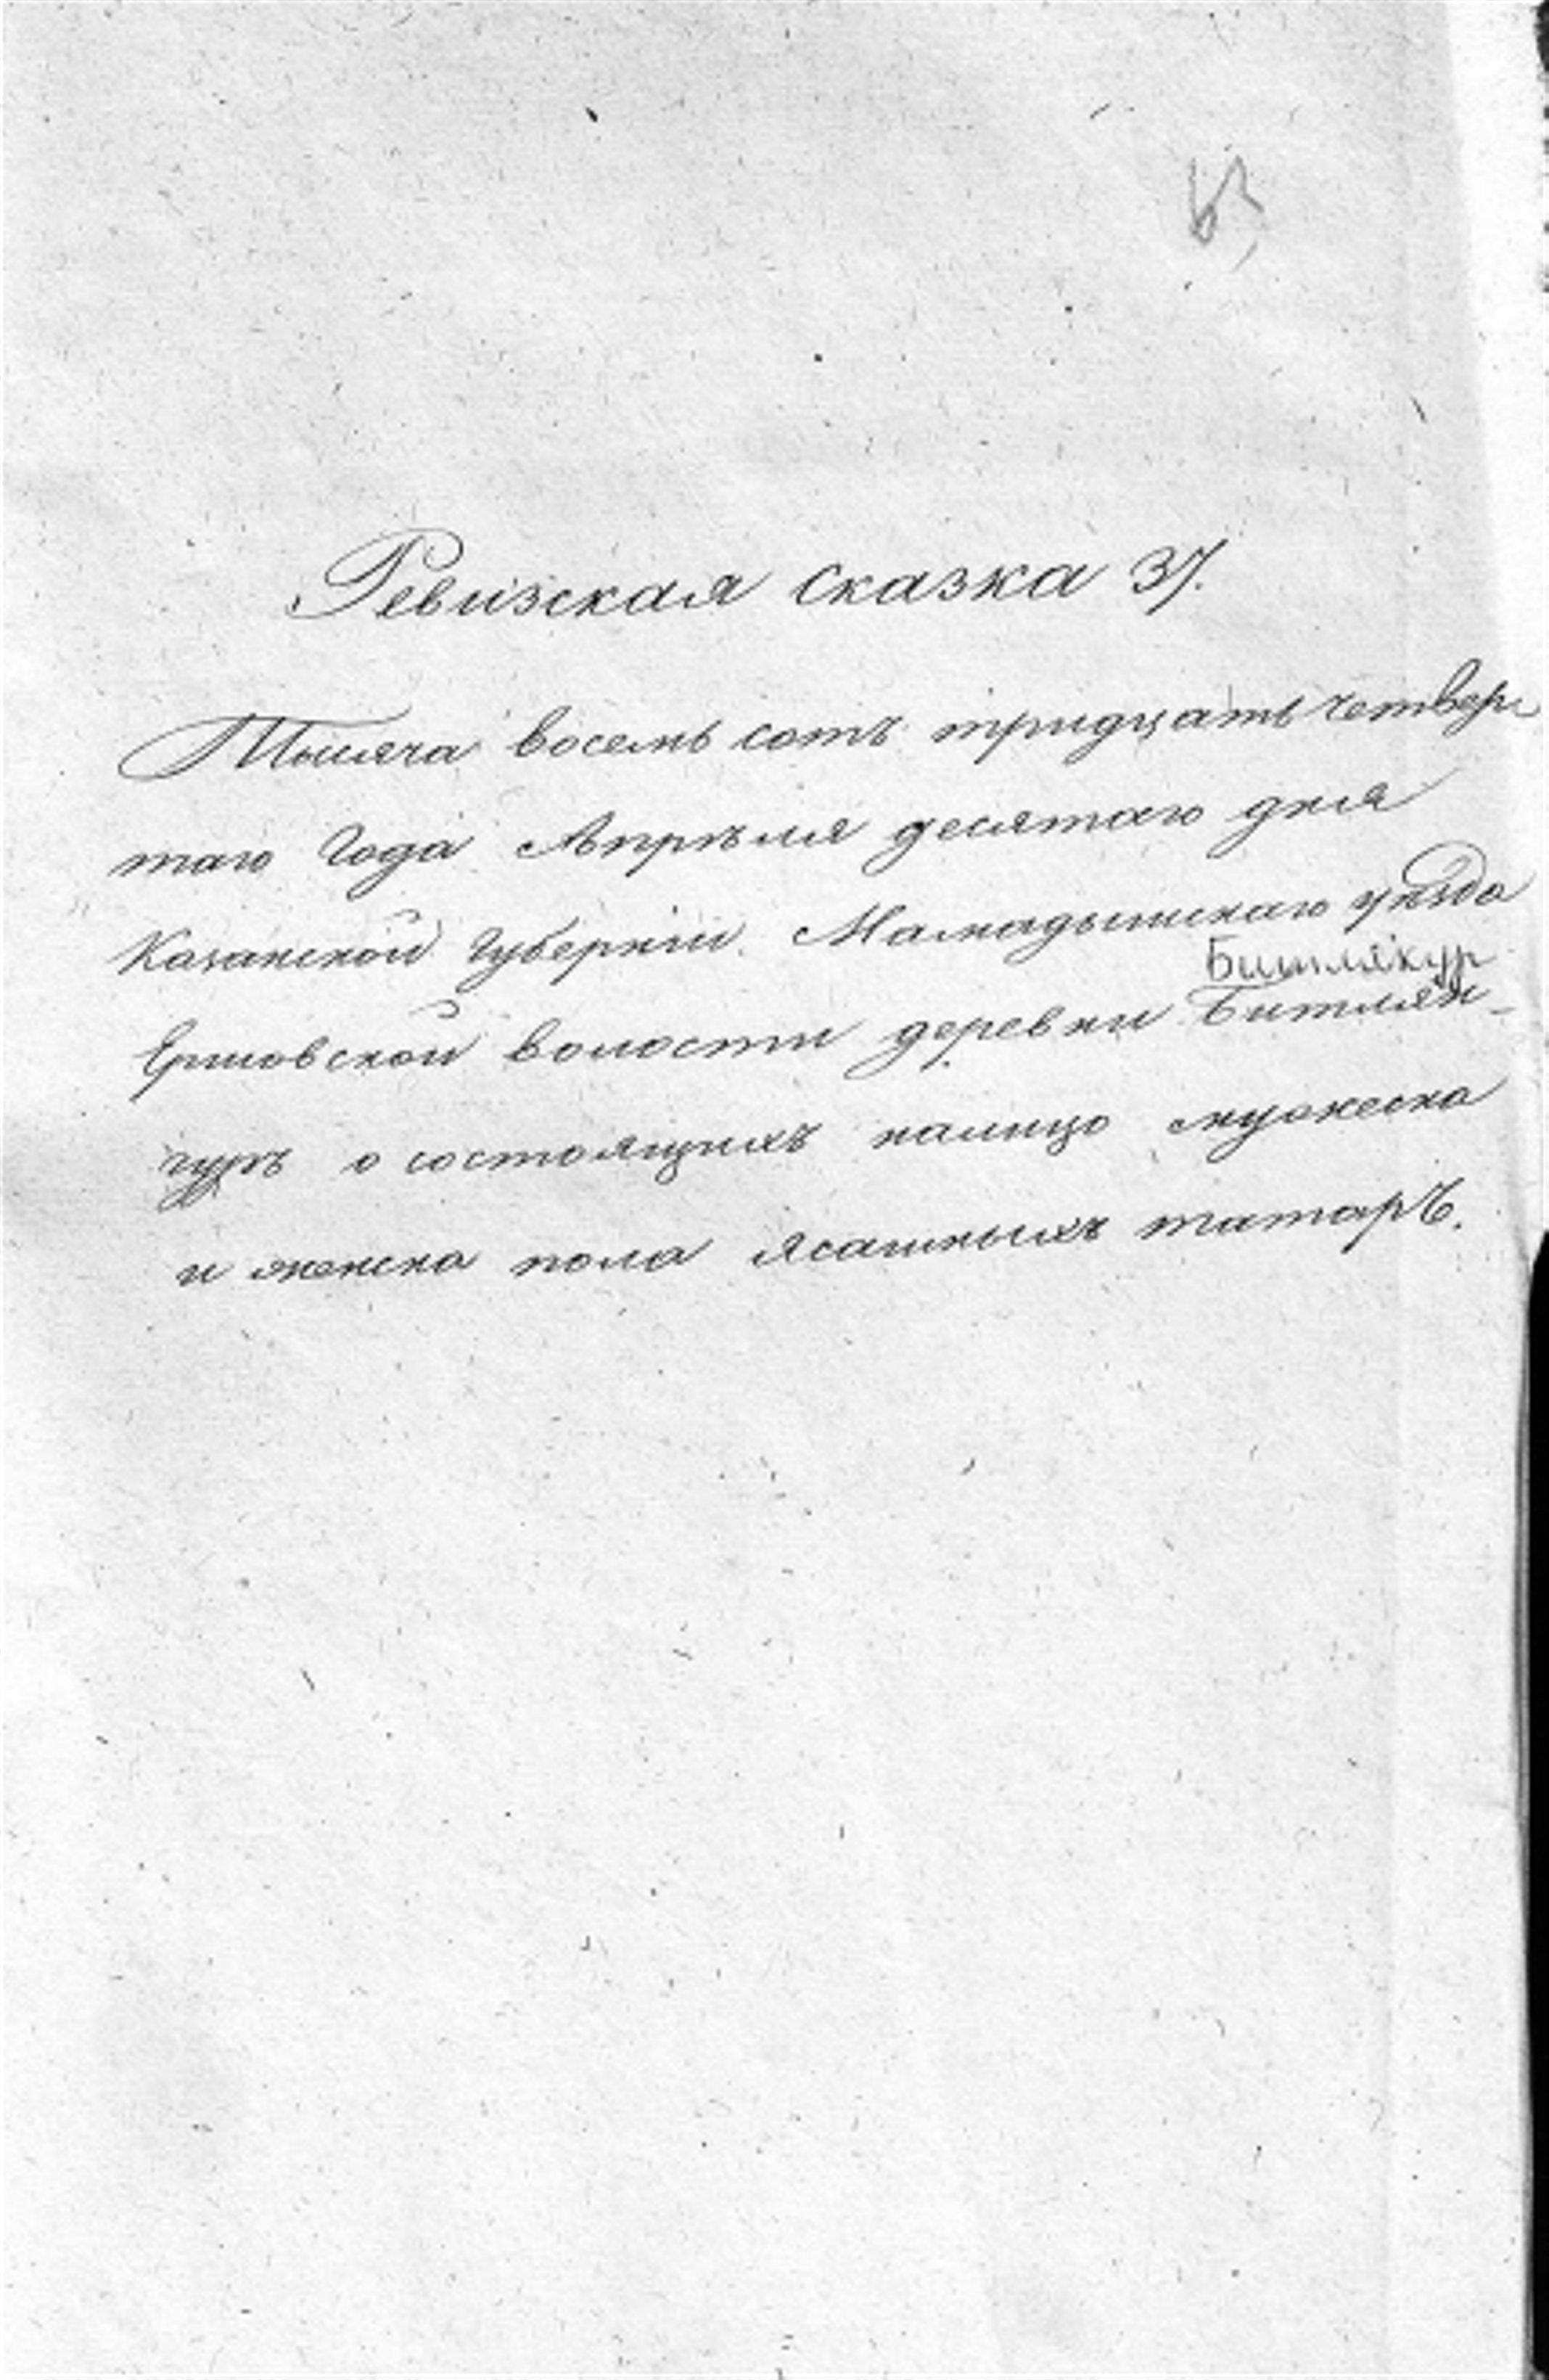 63
Ревизская сказка 37.
Тысяча восемь сотъ тридцать четвер
таго Года Апрѣля десятаго дня
Казанской Губерніи Мамадышскаго уѣзда
Бишлякур
Ершовской волости деревни Битлян-
гуръ о состоящихъ налицо мужеска
и женска пола Ясашныхъ татаръ.